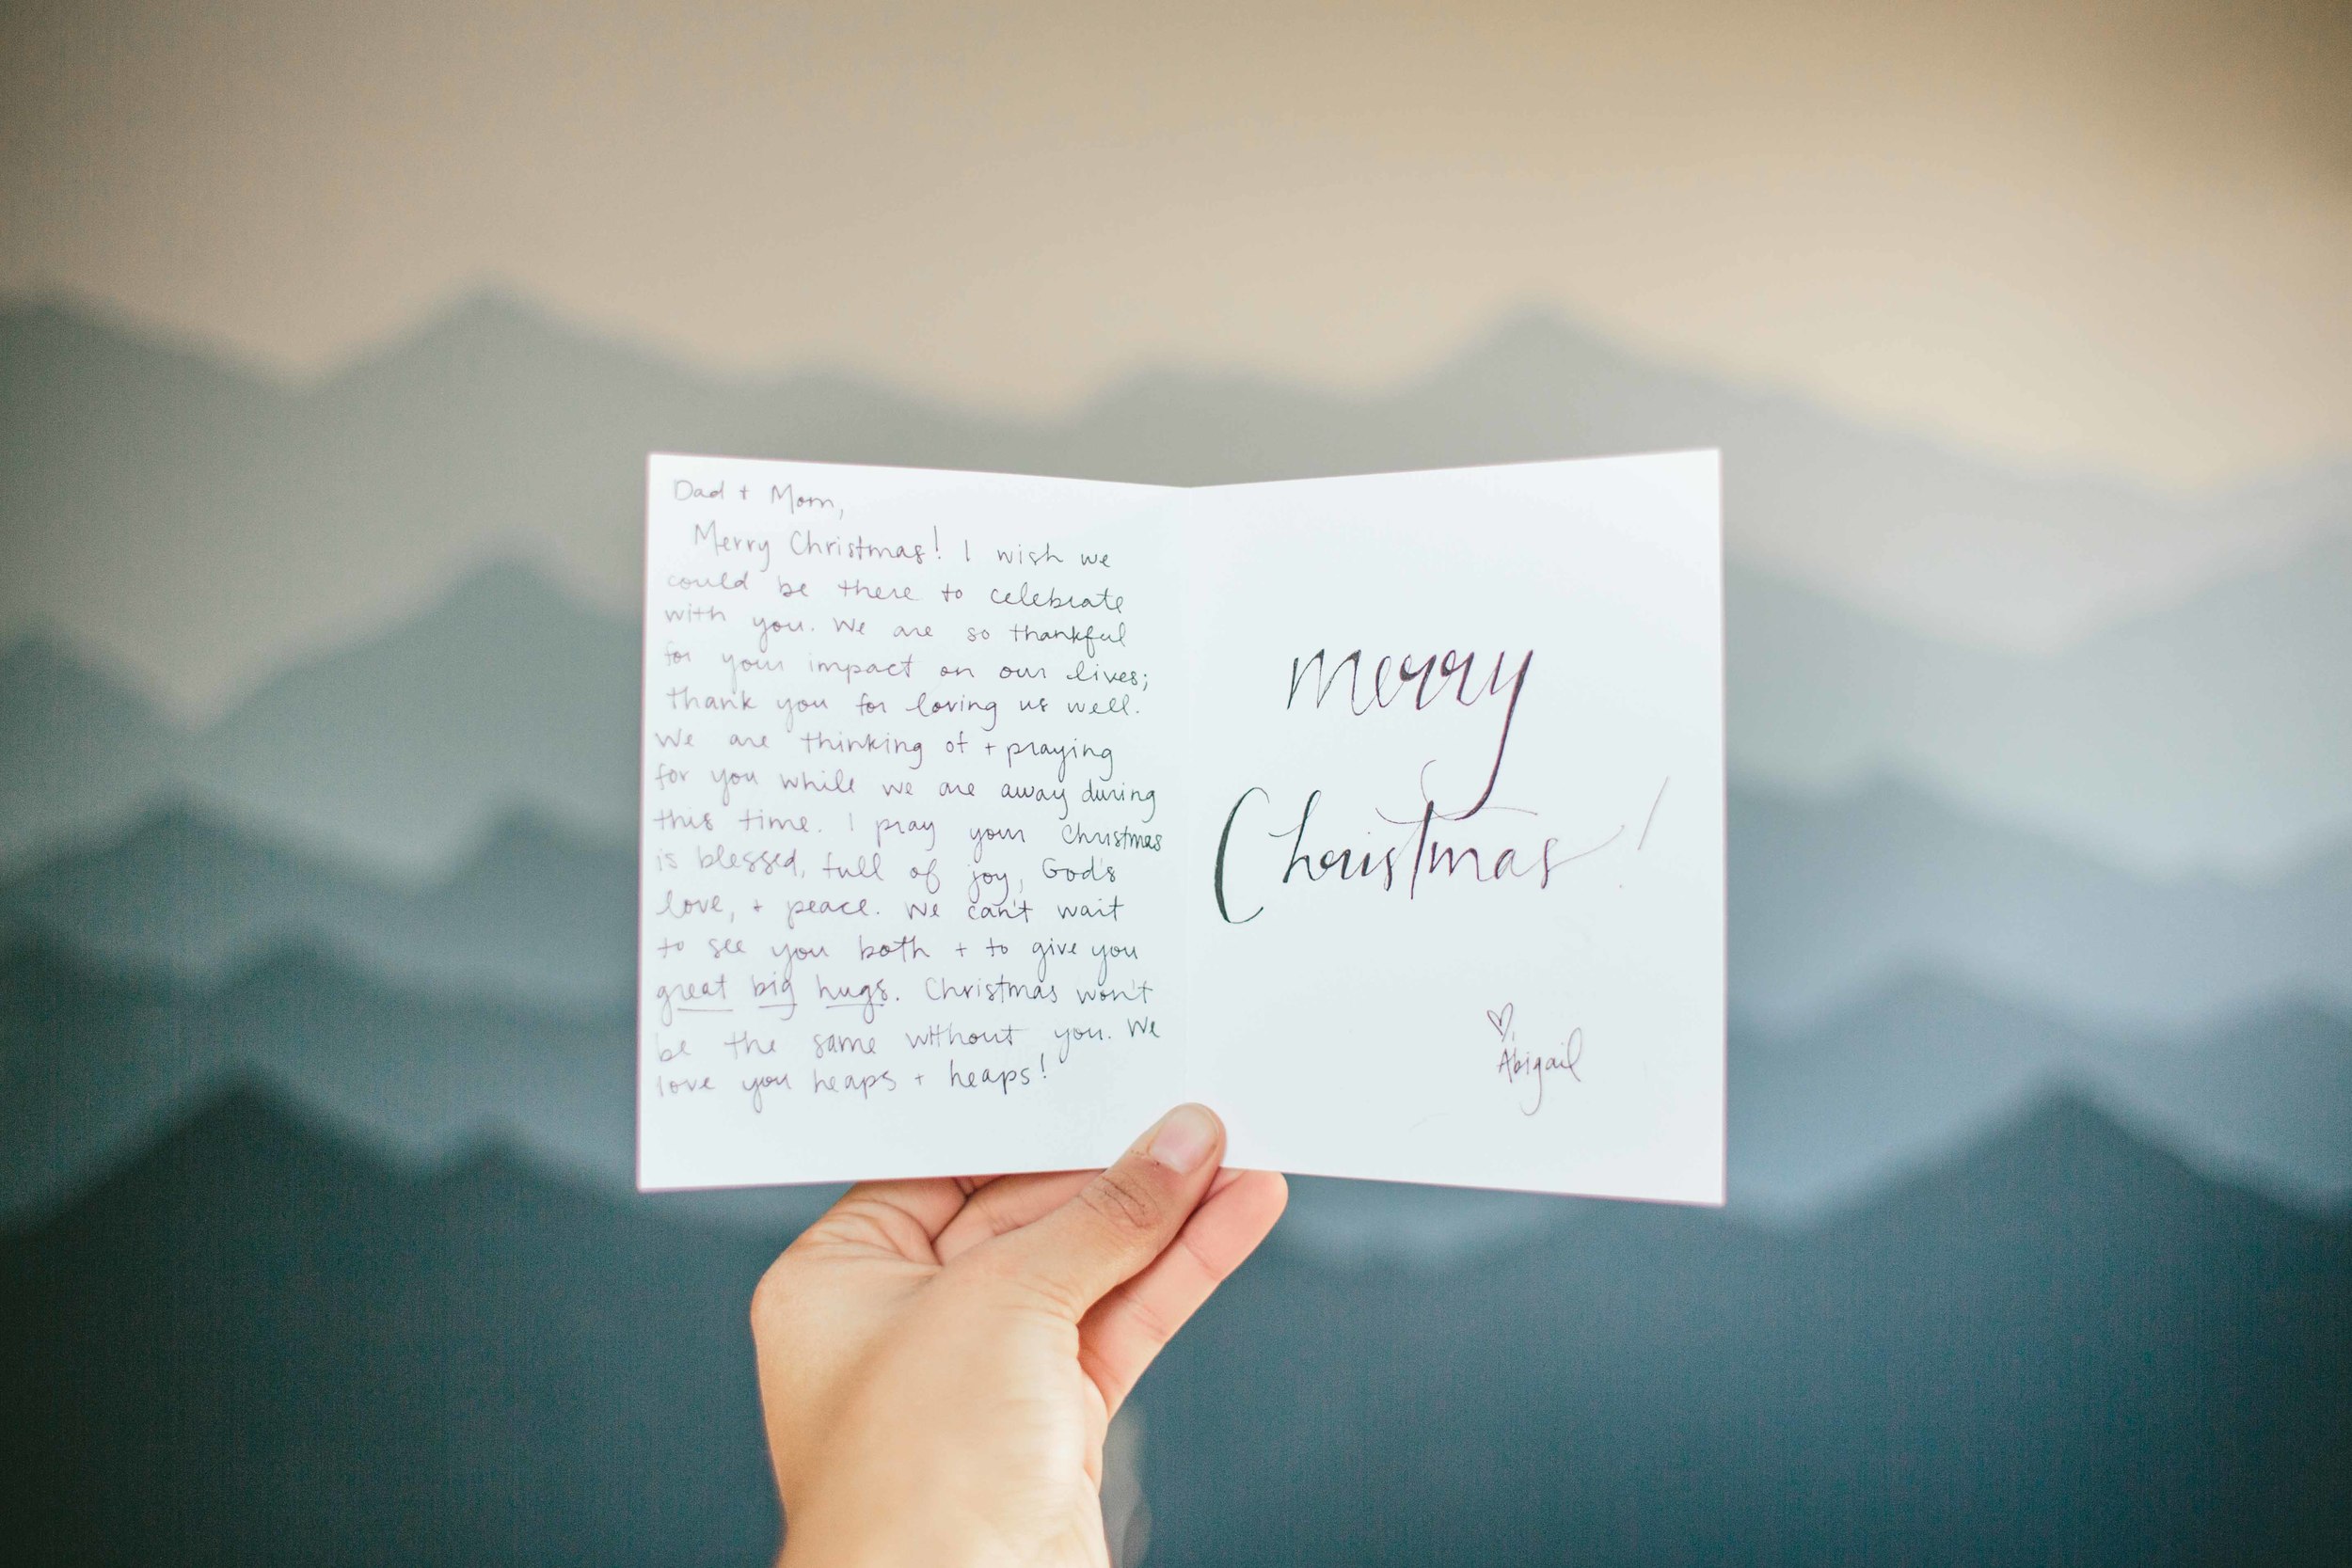 Dad + Mom,
Merry Christmas! I wish we
could be there to celebrate
with you. We are so thankful
for your impact on our lives;
thank you for loving us well.
We are thinking of + praying
for you while we are away during
this time. I pray your Christmas
is blessed, full of joy, God's
love, + peace. We can't wait
to see you both + to give you
great big hugs. Christmas won't
be the same without you. We
love you heaps + heaps!
merry
Christmas!
♡,
Abigail